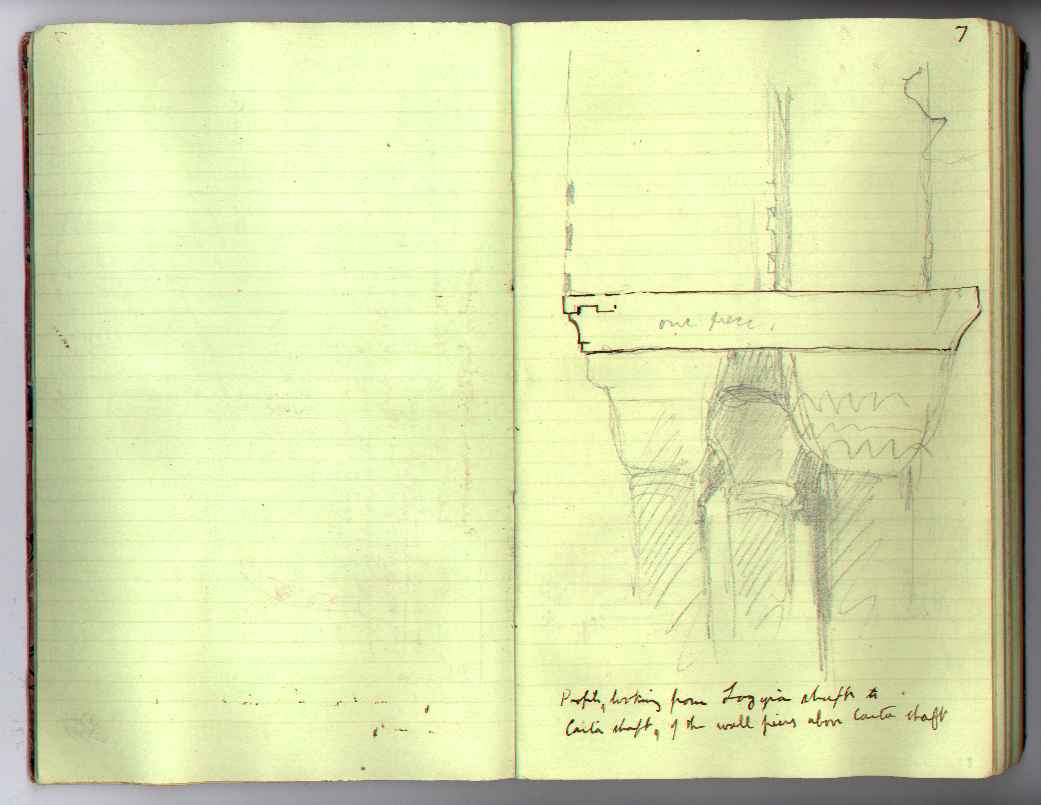 7
one piece,
Profile, looking from Loggia shafts to
Carita shaft, of the wall piers above Carita shaft